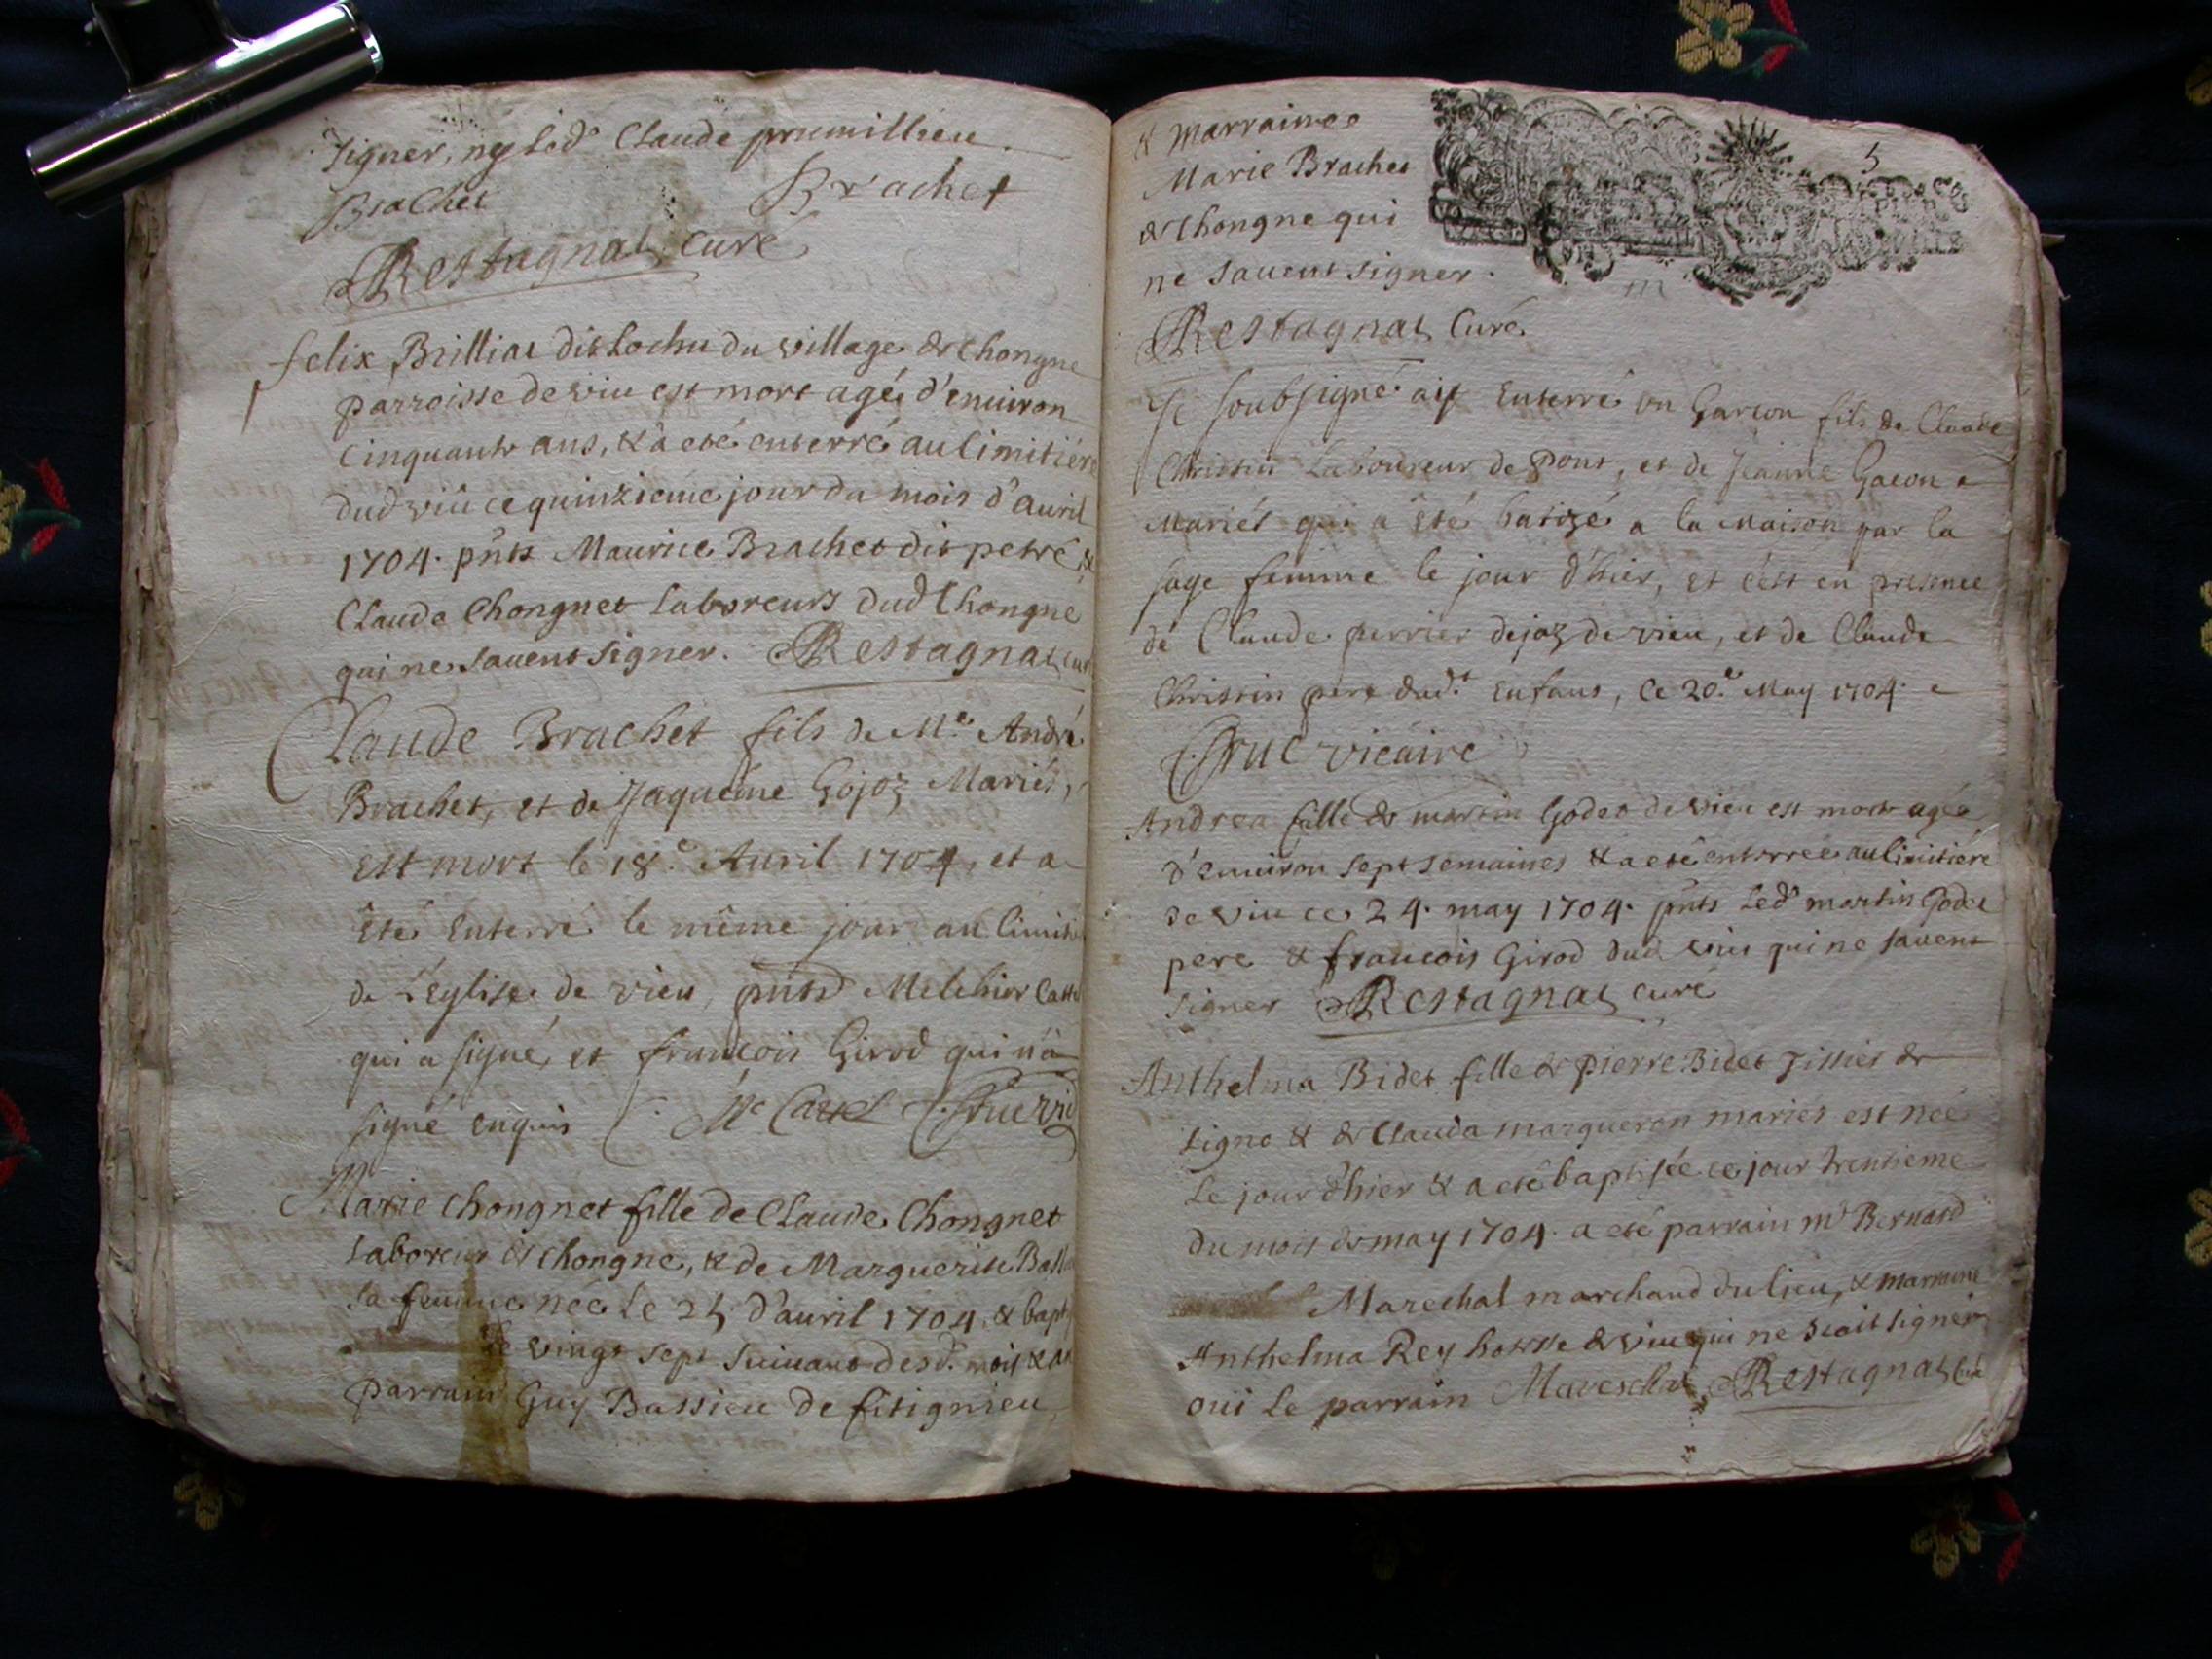 signer, ny led.t Claude prumillieu.
Brachet Brachet
Restagnat curé
felix Brilliat dit Lochu du village de Chongne
parroisse de viu est mort agé d'enuiron
cinquante ans, & a eté enterré au cimitiére
dud viu ce quinziéme jour du mois d'auril
1704. pnts Maurice Brachet dit petré &
Claude Chongnet laboreurs dud Chongne
qui ne sauent signer. Restagnat cur
Claude Brachet fils de M.e André
Brachet, et de Jaquême Gojoz Mariés,
est mort le 18.e Auril 1704, et a
êté Enterré le même jour au Cimiti
de l'Eglise de vieu, pnts Melchior Catte
qui a signé, et francois Girod qui n'a
signé enquis M.e C. Truc vic
Marie Chongnet fille de Claude Chongnet
laboreur de chongne, & de Marguerite Ball
sa femme née le 25 d'auril 1704, & bapt
le vingt sept suiuant desd. mois & an
parrain Guy Bassieu de fitignieu
5
& marraine
Marie Brachet
de Chongne qui
ne sauent signer.
Restagnat Curé
Je soubsigné ay Enterré un Garcon fils de Claude
Christin Laboureur de Pont, et de Jeanne Gacon
Mariés qui a êté batizé a la Maison par la
sage femme le jour d'hier, et c'est en presence
de Claude perrier dejoz de vieu, et de Claude
Christin pere dud.t Enfant, Ce 20.e May 1704.
C. Truc vicaire
Andrea fille de martin Godet de vieu est morte agée
d'enuiron sept semaines & a eté enterrée au cimitiére
de viu ce 24. may 1704. pnts led.t martin Godet
pere & francois Girod dud viu qui ne sauent
signer Restagnat curé
Anthelma Bidet fille de pierre Bidet Tissier de
Ligne & de Clauda margueron mariés est née
le jour d'hier & a eté baptisée ce jour trentiéme
du mois de may 1704. a eté parrain m.r Bernard
Marechal marchand du lieu, & marraine
Anthelma Rey hotesse de viu qui ne scait signer
oui le parrain Mareschal Restagnat Curé